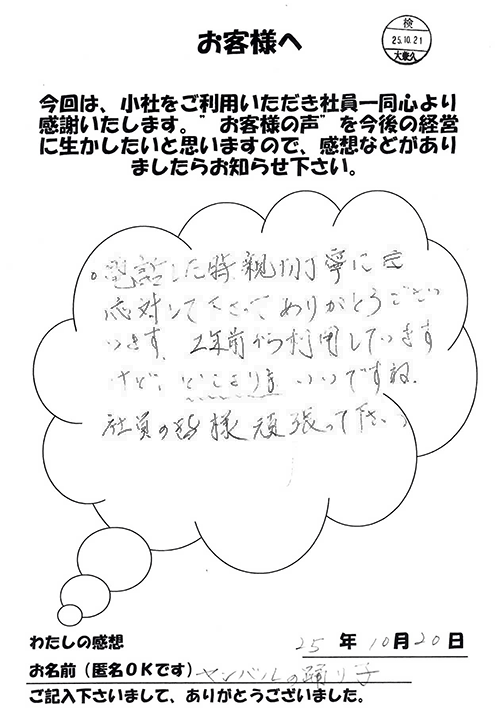 お客様へ
検
25.10.21
大泉久
今回は、小社をご利用いただき社員一同心より
感謝いたします。”お客様の声”を今後の経営
に生かしたいと思いますので、感想などがあり
ましたらお知らせ下さい。
。電話した時、親切丁寧に
応対して下さってありがとうござい
います。2年前から利用しています
けど、どこよりも いいですね。
社員の皆様頑張って下さい
わたしの感想
25 年 10月 20日
お名前（匿名OKです）ヤンバルの踊り子
ご記入下さいまして、ありがとうございました。